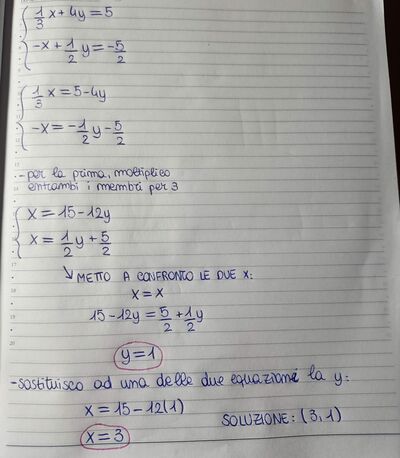 1/3 x + 4y = 5
-x + 1/2 y = -5/2
1/3 x = 5 - 4y
-x = -1/2 y - 5/2
- per la prima, moltiplico
entrambi i membri per 3
x = 15 - 12y
x = 1/2 y + 5/2
↘ METTO A CONFRONTO LE DUE X:
x = x
15 - 12y = 5/2 + 1/2 y
y = 1
- sostituisco ad una delle due equazioni la y:
x = 15 - 12(1)
x = 3
SOLUZIONE: (3,1)